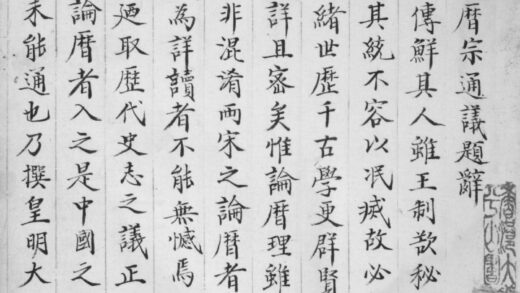 曆宗通議題辭
傳鮮其人雖王制欲秘
其統不容以泯烕故必
緒世歷千古學更群賢
詳且密矣惟論曆理雖
非混淆两宋之論曆者
為詳讀者不能無憾焉
廼取歷代史志之議正
論曆者入之是中國之
未能通也乃撰皇明大